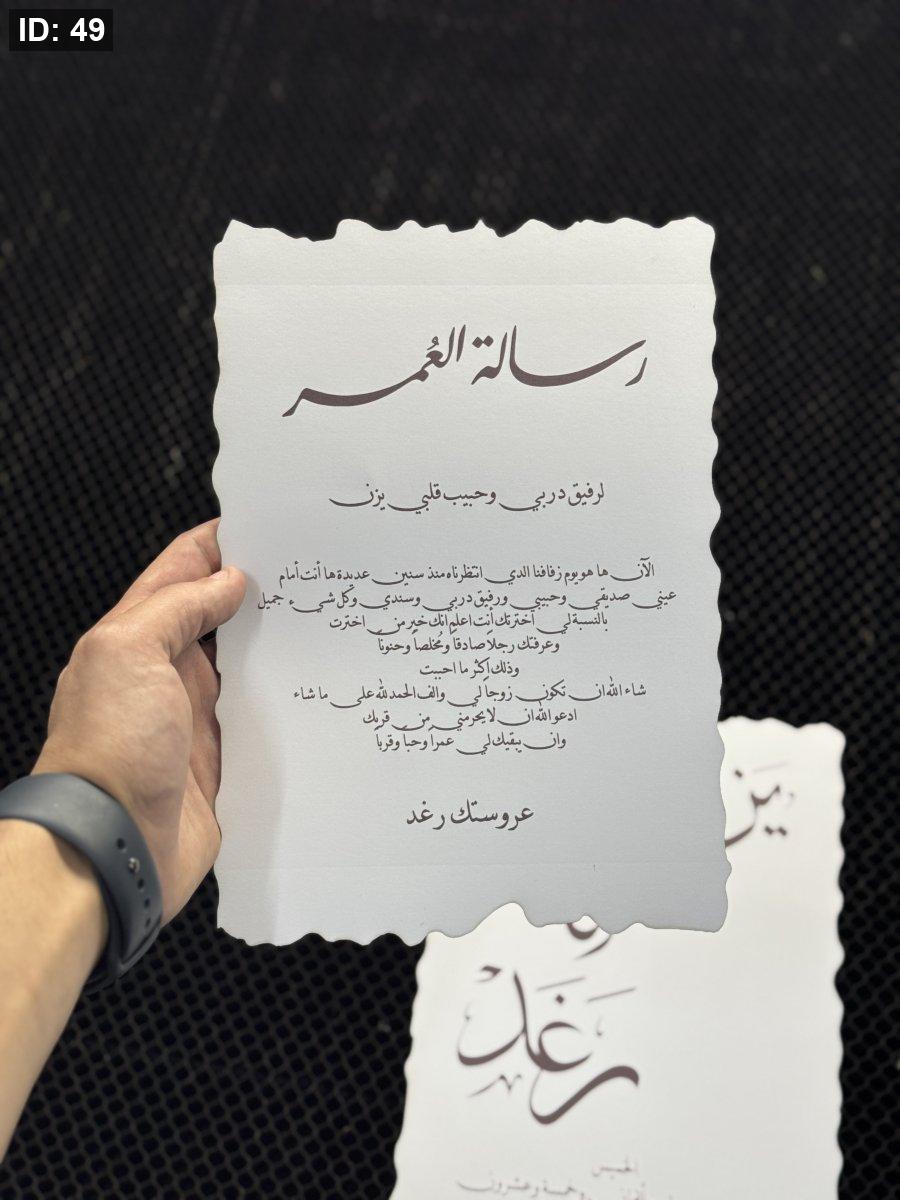 ID: 49
رسالة العُمر
لرفيق دربي وحبيب قلبي يزن
الآن ها هو يوم زفافنا الدي انتظرناه منذ سنين عديدة ها أنت أمام
عيني صديقي وحبيبي ورفيق دربي وسندي وكل شيء جميل
بالنسبة لي اخترتك أنت اعلم انك خير من اخترت
وعرفتك رجلاً صادقاً ومُخلصاً وحنوناً
وذلك اكثر ما احببت
شاء الله ان تكون زوجاً لي والف الحمد لله على ما شاء
ادعو الله ان لا يحرمني من قربك
وان يبقيك لي عمراً وحباً وقرباً
عروستك رغد
يزن
و
رغد
الخميس
وخمسة وعشرون